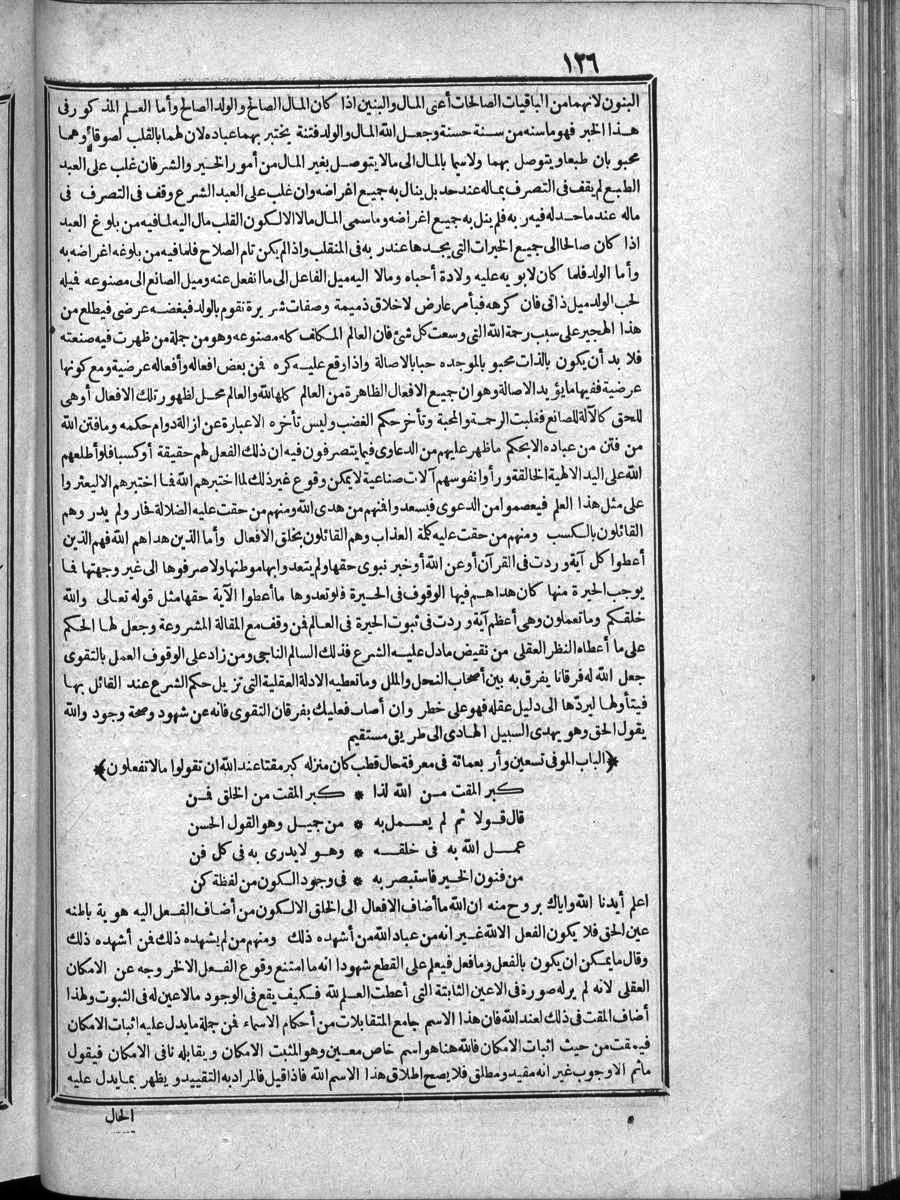 ١٣٦
البنون لانهما من الباقيات الصالحات أعنى المال والبنين اذا كان المال الصالح والولد الصالح وأما العلم المذكور فى
هذا الخبر فهو ما سنه من سنة حسنة وجعل الله المال والولد فتنة يختبر بهما عباده لان لهما بالقلب لصوقا وهما
محبوبان طبعا ويتوصل بهما ولاسيما بالمال الى مالا يتوصل بغير المال من أمور الخير والشر فان غلب على العبد
الطبع لم يقف فى التصرف بماله عند حد بل ينال به جميع اغراضه وان غلب على العبد الشرع وقف فى التصرف فى
ماله عند ما حد له فيه ربه فلم ينل به جميع اغراضه وما سمى المال مالا الا لكون القلب مال اليه لما فيه من بلوغ العبد
اذا كان صالحا الى جميع الخيرات التى يجدها عند ربه فى المنقلب واذا لم يكن تام الصلاح فلما فيه من بلوغه اغراضه به
وأما الولد فلما كان لابويه عليه ولادة أحباه ومالا اليه ميل الفاعل الى ما انفعل عنه وميل الصانع الى مصنوعه فميله
لحب الولد ميل ذاتى فان كرهه فبأمر عارض لاخلاق ذميمة وصفات شريرة تقوم بالولد فبغضه عرضى فيطلع من
هذا الهجير على سبب رحمة الله التى وسعت كل شئ فان العالم المكلف كله مصنوعه وهو من جملة من ظهرت فيه صنعته
فلا بد أن يكون بالذات محبوبا لموجده حبا بالاصالة واذا وقع عليه كره فمن بعض افعاله وأفعاله عرضية ومع كونها
عرضية ففيها ما يؤيد الاصالة وهو ان جميع الافعال الظاهرة من العالم كلها لله والعالم محل لظهور تلك الافعال أو هى
للحق كالآلة للصانع فغلبت الرحمة والمحبة وتأخر حكم الغضب وليس تأخره الا عبارة عن ازالة دوام حكمه وما فتن الله
من فتن من عباده الا بحكم ما ظهر عليهم من الدعاوى فيما يتصرفون فيه ان ذلك الفعل لهم حقيقة أو كسبا فلو أطلعهم
الله على اليد الالهية الخالقة ورأوا نفوسهم آلات صناعية لا يمكن وقوع غير ذلك لما اختبرهم الله فما اختبرهم الا ليعثروا
على مثل هذا العلم فيعصموا من الدعوى فيسعدوا فمنهم من هدى الله ومنهم من حقت عليه الضلالة فحار ولم يدر وهم
القائلون بالكسب ومنهم من حقت عليه كلمة العذاب وهم القائلون بخلق الافعال وأما الذين هداهم الله فهم الذين
أعطوا كل آية وردت فى القرآن أو عن الله أو خبر نبوى حقها ولم يتعدوا بها موطنها ولا صرفوها الى غير وجهتها فما
يوجب الحيرة منها كان هداهم فيها الوقوف فى الحيرة فلو تعدوها ما أعطوا الآية حقها مثل قوله تعالى والله
خلقكم وما تعملون وهى أعظم آية وردت فى ثبوت الحيرة فى العالم فمن وقف مع المقالة المشروعة وجعل لها الحكم
على ما أعطاه النظر العقلى من نقيض ما دل عليه الشرع فذلك السالم الناجى ومن زاد على الوقوف العمل بالتقوى
جعل الله له فرقانا يفرق به بين أصحاب النحل والملل وما تعطيه الادلة العقلية التى تزيل حكم الشرع عند القائل بها
فيتأولها ليردّها الى دليل عقله فهو على خطر وان أصاب فعليك بفرقان التقوى فانه عن شهود وصحة وجود والله
يقول الحق وهو يهدى السبيل الهادى الى طريق مستقيم
﴿الباب الموفى تسعين وأربعمائة فى معرفة حال قطب كان منزله كبر مقتا عند الله ان تقولوا مالا تفعلون﴾
كبر المقت من الله لذا * كبر المقت من الخلق فمن
قال قولا ثم لم يعمل به * من جميل وهو القول الحسن
عمل الله به فى خلقه * وهو لا يدرى به فى كل فن
من فنون الخير فاستبصر به * فى وجود الكون من لفظة كن
اعلم أيدنا الله واياك بروح منه ان الله ما أضاف الافعال الى الخلق الا لكون من أضاف الفعل اليه هوية باطنه
عين الحق فلا يكون الفعل الا لله غير انه من عباد الله من أشهده ذلك ومنهم من لم يشهده ذلك فمن أشهده ذلك
وقال ما يمكن ان يكون بالفعل وما فعل فيعلم على القطع شهودا انه ما امتنع وقوع الفعل الا لخروجه عن الامكان
العقلى لانه لم ير له صورة فى الاعين الثابتة التى أعطت العلم لله فكيف يقع فى الوجود مالا عين له فى الثبوت ولهذا
أضاف المقت فى ذلك لعند الله فان هذا الاسم جامع المتقابلات من أحكام الاسماء فمن جملة ما يدل عليه اثبات الامكان
فيمقت من حيث اثبات الامكان فالله هنا هو اسم خاص معين وهو المثبت الامكان ويقابله نافى الامكان فيقول
ماثم الا وجوب غير انه مقيد ومطلق فلا يصح اطلاق هذا الاسم الله فاذا قيل فالمراد به التقييد ويظهر بما يدل عليه
الحال